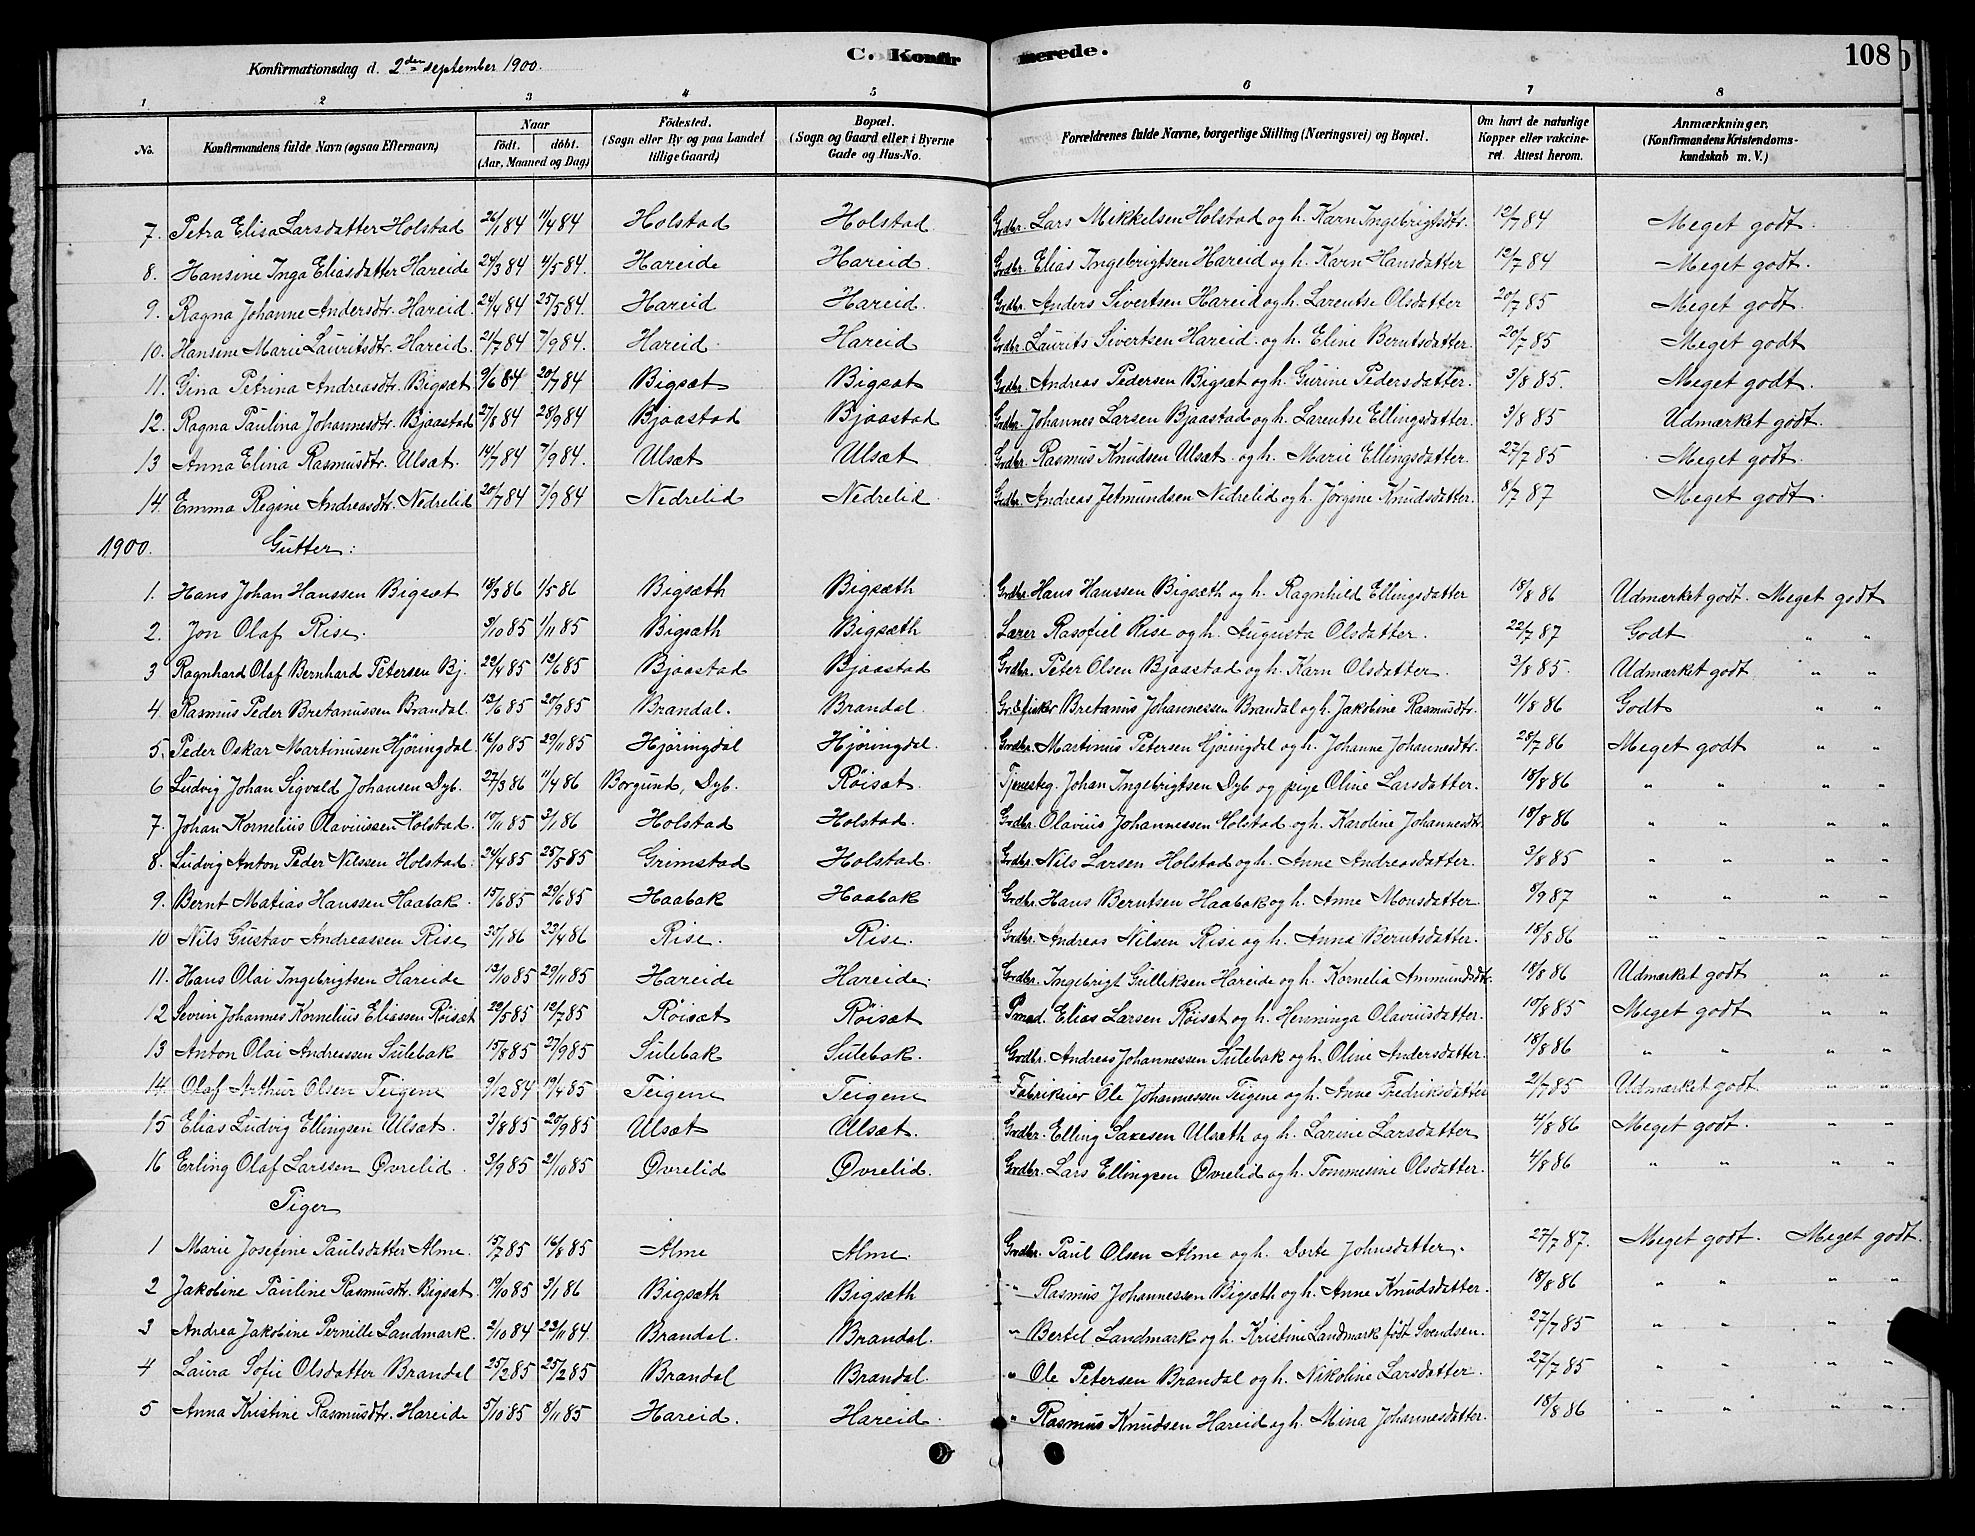 C. Konfirmerede.
108
Konfirmationsdag d. 2den september 1900.
1 2 3 4 5 6 7 8
No. Konfirmandens fulde Navn (ogsaa Efternavn) Naar født. døbt. (Aar, Maaned og Dag) Födested. (Sogn eller By og paa Landet tillige Gaard) Bopæl. (Sogn og Gaard eller i Byerne Gade og Hus-No. Forældrenes fulde Navne, borgerlige Stilling (Næringsvei) og Bopæl. Om havt de naturlige Kopper eller vakcineret. Attest herom. Anmærkninger. (Konfirmandens Kristendomskundskab m. V.)
7. Petra Elisa Larsdatter Holstad 26/1 84 11/4 84 Holstad Holstad Grdbr. Lars Mikkelsen Holstad og h. Karn Ingebrigtsdtr. 12/7 84 Meget godt.
8. Hansine Inga Eliasdatter Hareide 24/3 84 4/5 84. Hareide Hareid. Grdbr. Elias Ingebrigtsen Hareid og h. Karn Hansdatter 12/7 84 Meget godt.
9. Ragna Johanne Andersdtr. Hareid. 24/4 84 25/5 84. Hareid Hareid. Grdbr. Anders Sivertsen Hareid og h. Larentse Olsdatter 20/7 85 Meget godt.
10. Hansine Marie Lauritsdtr. Hareid. 21/7 84 7/9 84. Hareid. Hareid Grdbr. Laurits Sivertsen Hareid. og h. Eline Berntsdatter. 20/7 85 Meget godt
11. Gina Petrina Andreasdtr. Bigsæt 9/6 84 20/7 84 Bigsæt Bigsæt Grdbr. Andreas Pedersen Bigsæt og h. Gurine Pedersdatter. 3/8 85. Meget godt.
12. Ragna Paulina Johannesdtr. Bjaastad 27/8 84 28/9 84 Bjaastad Bjaastad Grdbr. Johannes Larsen Bjaastad og h. Larentse Ellingsdatter. 3/8 85 Udmærket godt.
13 Anna Elina Rasmusdtr. Ulsæt. 14/7 84 7/9 84. Ulsæt Ulsæt. Grdbr. Rasmus Knudsen Ulsæt. og h. Marie Ellingsdatter. 27/7 85 Meget godt.
14. Emma Regine Andreasdtr. Nedrelid 20/7 84 7/9 84. Nedrelid Nedrelid. Grdbr. Andreas Jetmundsen Nedrelid og h. Jørgine Knudsdatter. 8/7 87 Meget godt.
1900. Gutter:
1. Hans Johan Hanssen Bigsæt 18/3 86 1/5 86 Bigsæth Bigsæth Grdbr. Hans Hanssen Bigsæth og h. Ragnhild Ellingsdatter 18/8 86 Udmærket godt. Meget godt
2. Jon Olaf Rise. 9/10 85 1/11 85 Bigsæth Bigsæth Lærer Rasofiel Rise og h. Augusta Olsdatter. 22/7 87 Godt " "
3 Ragnhard Olaf Bernhard Petersen Bj. 22/4 85 12/6 85 Bjaastad Bjaastad Grdbr. Peter Olsen Bjaastad og h. Karn Olsdatter. 3/8 85. Udmærket godt " "
4. Rasmus Peder Bretanussen Brandal. 13/6 85 20/9 85 Brandal. Brandal Gr. & fisker Bretanus Johannessen Brandal og h. Jakobine Rasmusdtr. 11/8 86 Godt " "
5. Peder Oskar Martinusen Hjøringdal 16/10 85 29/11 85 Hjøringdal Hjøringdal. Grdbr. Martinus Petersen Hjøringdal og h. Johanne Johannesdtr. 28/7 86 Meget godt " "
6 Ludvig Johan Sigvald Johansen Dyb. 27/3 86 11/4 86 Borgund, Dyb. Røisæt. Tjenestg. Johan Ingebrigtsen Dyb og pige Oline Larsdatter. 18/8 86 " " " "
7. Johan Kornelius Olaviussen Holstad. 10/11 85 3/1 86 Holstad Holstad. Grdbr. Olavius Johannessen Holstad og h. Karoline Johannesdtr. 18/8 86 " " " "
8. Ludvig Anton Peder Nilssen Holstad. 24/4 85 25/5 85 Grimstad Holstad. Grdbr. Nils Larsen Holstad og h. Anne Andreasdatter. 3/8 85 " " " "
9. Bernt Matias Hanssen Haabak. 15/6 85 29/6 85 Haabak Haabak Grdbr. Hans Berntsen Haabak og h. Anne Monsdatter. 8/9 87 " " " "
10 Nils Gustav Andreassen Rise 30/1 86 23/4 86 Rise. Rise. Grdbr. Andreas Nilsen Rise og h. Anna Berntsdatter. 18/8 86 " " " "
11. Hans Olai Ingebrigtsen Hareide 13/10 85 29/11 85 Hareide Hareide. Grdbr. Ingebrigt Gulliksen Hareide og h. Kornelia Ammundsdtr. 18/8 86 Udmærket godt " "
12 Severin Johannes Kornelius Eliassen Røisæt 22/5 85 12/7 85 Røisæt Røisæt Elias Larsen Røisæt og h. Henninga Olaviusdatter. 10/8 85 Meget godt " "
13 Anton Olai Andreassen Sulebak 15/8 85 27/9 85 Sulebak Sulebak. Grdbr. Andreas Johannessen Sulebak og h. Oline Andersdatter. 18/8 86 " " " "
14. Olaf Arthur Olsen Teigene 9/12 84 19/4 85 Teigene Teigene Fabrikeier Ole Johannessen Teigene og h. Anne Fredriksdatter 21/7 85 Udmærket godt " "
15 Elias Ludvig Ellingsen Ulsæt. 3/8 85 20/9 85 Ulsæt Ulsæt. Grdbr. Elling Saxesen Ulsæth og h. Larine Larsdatter 4/8 86 Meget godt. " "
16 Erling Olaf Larssen Øvrelid. 3/9 85 2/10 85 Øvrelid Øvrelid. Grdbr. Lars Ellingsen Øvrelid og h. Tommesine Olsdatter. 4/8 86 " " " "
Piger
1 Marie Josefine Paulsdatter Alme. 15/7 85 16/8 85 Alme Alme. Grdbr. Paul Olsen Alme og h. Dorte Johnsdatter. 27/7 87. Meget godt. Meget godt.
2 Jakobine Pauline Rasmusdtr. Bigsæt. 19/10 85 3/1 86 Bigsæth Bigsæth " Rasmus Johannessen Bigsæth og h. Anne Knudsdatter. 18/8 86 " " " "
3 Andrea Jakobine Pernille Landmark. 2/10 84 23/11 84. Brandal. Brandal. " Bertel Landmark og h. Kristine Landmark født Svendsen. 27/7 85 " " " "
4 Laura Sofie Olsdatter Brandal 25/2 85 25/2 85 Brandal Brandal. " Ole Petersen Brandal og h. Nikoline Larsdatter. 27/7 85 " " " "
5 Anna Kristine Rasmusdtr. Hareide 5/10 85 8/11 85 Hareid. Hareid. " Rasmus Knudsen Hareid og h. Mina Johannesdatter. 18/8 86 " " " "